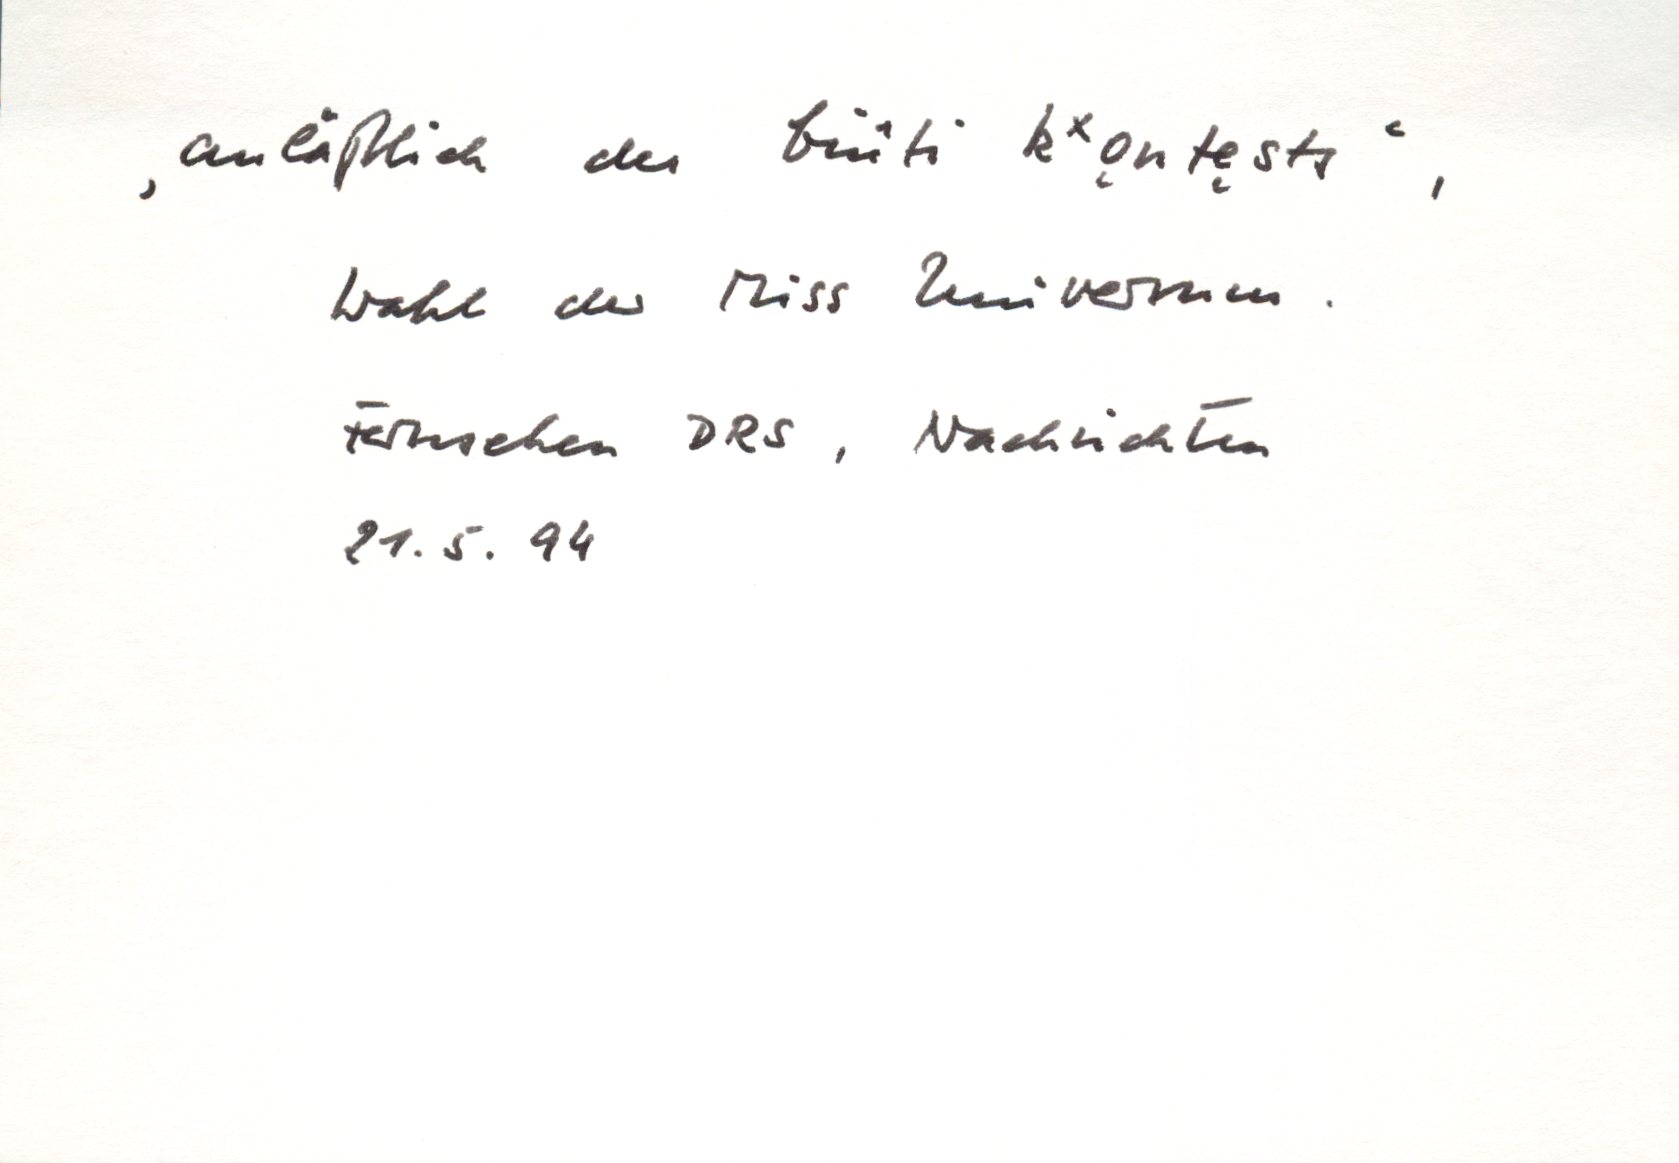 ‚anläßlich des biûti kˣo̜nte̜sts‘,
Wahl der Miss Universum.
Fernsehen DRS, Nachrichten
21.5.94